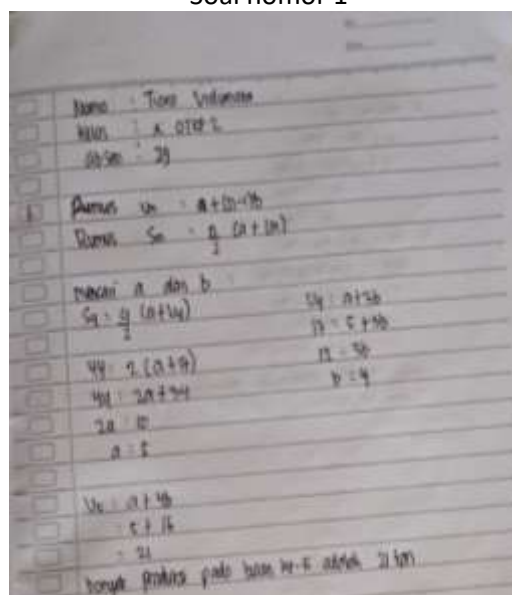 Soal nomor 1
Nama : Tiara
Kelas : X OTKP 2
absen : 29
1 Rumus Un = a+(n-1)b
Rumus Sn = n/2 (a+Un)
mencari a dan b
S4 = 4/2 (a+U4)
44 = 2(a+17)
44 = 2a+34
2a = 10
a = 5
U4 = a+3b
17 = 5+3b
12 = 3b
b = 4
U5 = a+4b
= 5+16
= 21
banyak produksi pada bulan ke-5 adalah 21 ton